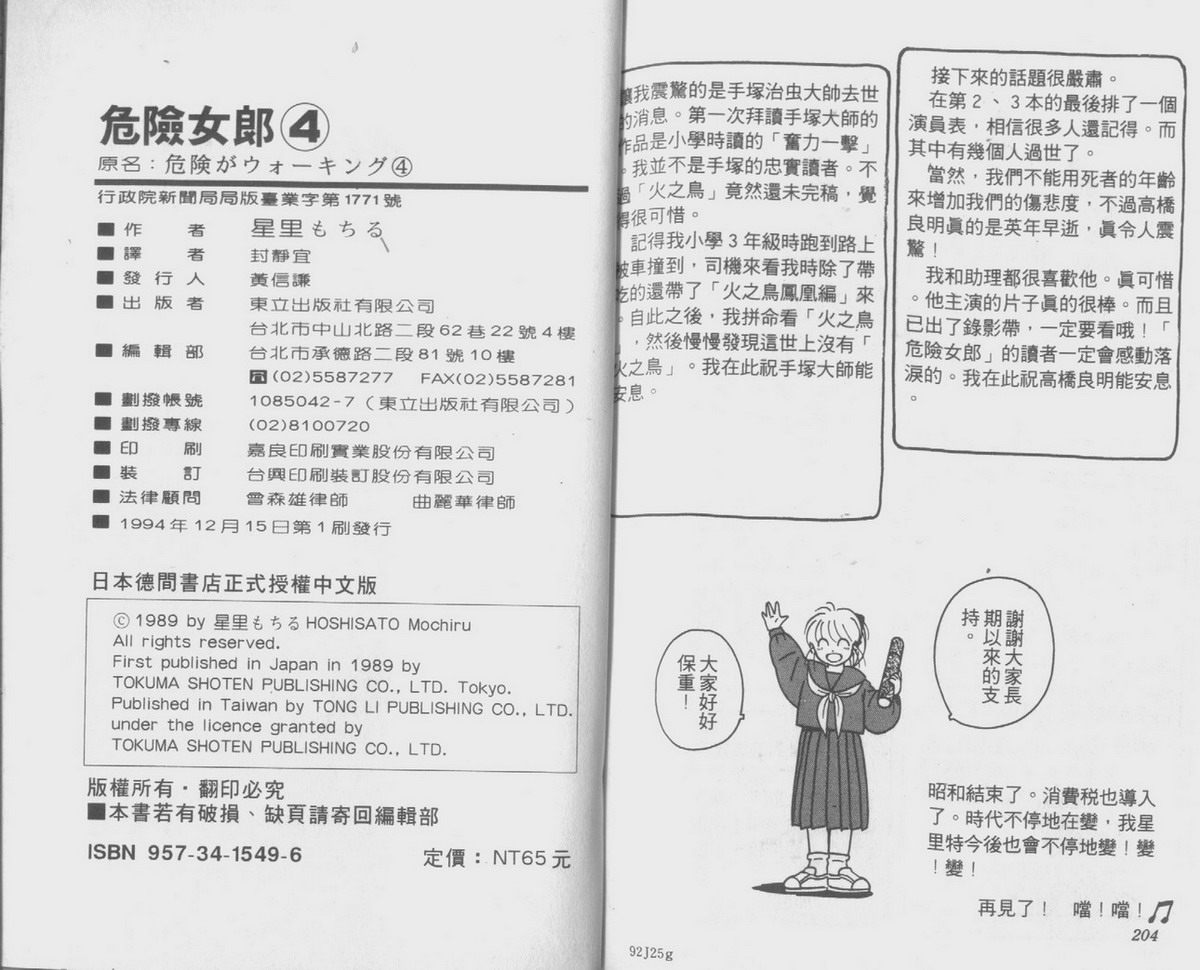 危險女郎④
原名：危険がウォーキング④
行政院新聞局局版臺業字第1771號
■作　　者　星里もちる
■譯　　者　封靜宜
■發 行 人　黃信謙
■出 版 者　東立出版社有限公司
台北市中山北路二段62巷22號4樓
■編 輯 部　台北市承德路二段81號10樓
☎(02)5587277　FAX(02)5587281
■劃撥帳號　1085042-7（東立出版社有限公司）
■劃撥專線　(02)8100720
■印　　刷　嘉良印刷實業股份有限公司
■裝　　訂　台興印刷裝訂股份有限公司
■法律顧問　曾森雄律師　　曲麗華律師
■1994年12月15日第1刷發行
日本德間書店正式授權中文版
© 1989 by 星里もちる HOSHISATO Mochiru
All rights reserved.
First published in Japan in 1989 by
TOKUMA SHOTEN PUBLISHING CO., LTD. Tokyo.
Published in Taiwan by TONG LI PUBLISHING CO., LTD.
under the licence granted by
TOKUMA SHOTEN PUBLISHING CO., LTD.
版權所有・翻印必究
■本書若有破損、缺頁請寄回編輯部
ISBN 957-34-1549-6　定價：NT65元
接下來的話題很嚴肅。
在第２、３本的最後排了一個
演員表，相信很多人還記得。而
其中有幾個人過世了。
當然，我們不能用死者的年齡
來增加我們的傷悲度，不過高橋
良明眞的是英年早逝，眞令人震
驚！
我和助理都很喜歡他。眞可惜
。他主演的片子眞的很棒。而且
已出了錄影帶，一定要看哦！「
危險女郎」的讀者一定會感動落
淚的。我在此祝高橋良明能安息
。
讓我震驚的是手塚治虫大師去世
的消息。第一次拜讀手塚大師的
作品是小學時讀的「奮力一擊」
。我並不是手塚的忠實讀者。不
過「火之鳥」竟然還未完稿，覺
得很可惜。
記得我小學３年級時跑到路上
被車撞到，司機來看我時除了帶
吃的還帶了「火之鳥鳳凰編」來
。自此之後，我拼命看「火之鳥
」，然後慢慢發現這世上沒有「
火之鳥」。我在此祝手塚大師能
安息。
謝謝大家長
期以來的支
持。
大家好好
保重！
昭和結束了。消費税也導入
了。時代不停地在變，我星
里特今後也會不停地變！變
！變！
再見了！　噹！噹！♫
204
92J25g